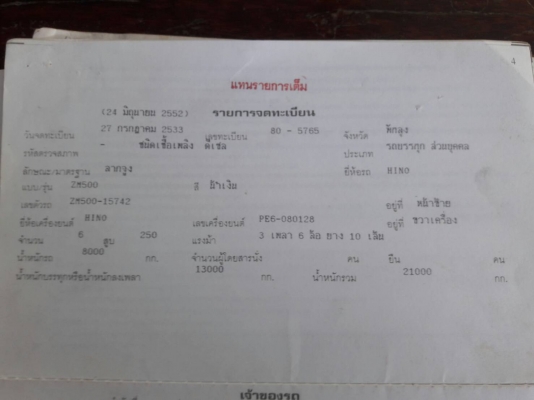 4
แทนรายการเดิม
(24 มิถุนายน 2552) รายการจดทะเบียน
วันจดทะเบียน 27 กรกฎาคม 2533 เลขทะเบียน 80 - 5765 จังหวัด พัทลุง
รหัสตรวจสภาพ - ชนิดเชื้อเพลิง ดีเซล ประเภท รถบรรทุก ส่วนบุคคล
ลักษณะ/มาตรฐาน ลากจูง ยี่ห้อรถ HINO
แบบ/รุ่น ZM500 สี ฟ้าเงิน
เลขตัวรถ ZM500-15742 อยู่ที่ หน้าซ้าย
ยี่ห้อเครื่องยนต์ HINO เลขเครื่องยนต์ PE6-080128 อยู่ที่ ขวาเครื่อง
จำนวน 6 สูบ 250 แรงม้า 3 เพลา 6 ล้อ ยาง 10 เส้น
น้ำหนักรถ 8000 กก. จำนวนผู้โดยสารนั่ง คน ยืน คน
น้ำหนักบรรทุกหรือน้ำหนักลงเพลา 13000 กก. น้ำหนักรวม 21000 กก.
เจ้าของรถ